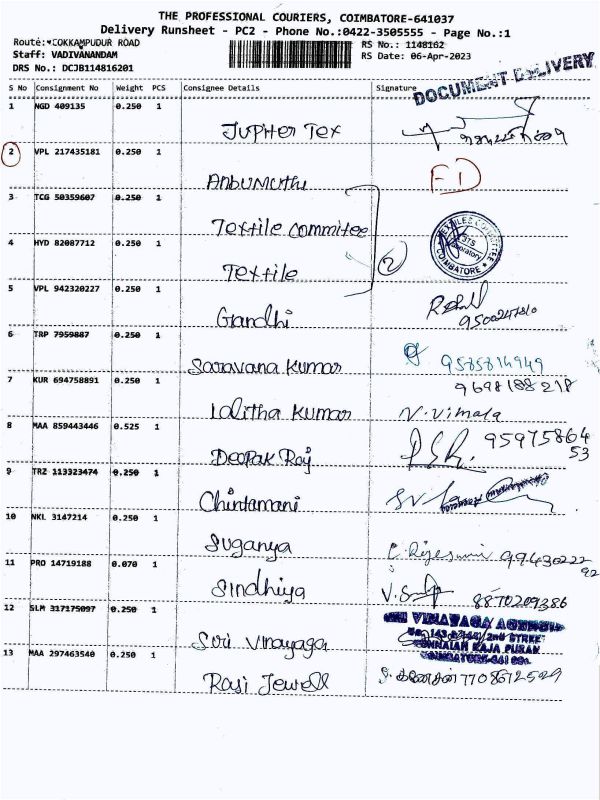 THE PROFESSIONAL COURIERS, COIMBATORE-641037
Delivery Runsheet - PC2 - Phone No.:0422-3505555 - Page No.:1
Route: COKKAMPUDUR ROAD
RS No.: 1148162
Staff: VADIVANANDAM
RS Date: 06-Apr-2023
DRS No.: DCJB114816201
DOCUMENT DELIVERY
S No Consignment No Weight PCS Consignee Details Signature
1 NGD 409135 0.250 1
Jupiter Tex
2 VPL 217435181 0.250 1
Anbumuthu FD
3 TCG 50359607 0.250 1
Textile Committee
4 HYD 82087712 0.250 1
Textile 2 COIMBATORE
5 VPL 942320227 0.250 1
Gandhi
6 TRP 7959887 0.250 1
Saravana Kumar 9585814949
7 KUR 694758891 0.250 1 9698188218
Lalitha Kumar N. Vimala
8 MAA 859443446 0.525 1 95975864
53
Deepak Raj
9 TRZ 113323474 0.250 1
Chintamani
10 NKL 3147214 0.250 1
Suganya 99430222
92
11 PRO 14719188 0.070 1
Sindhiya 8870209386
12 SLM 317175097 0.250 1
SRI VINAYAGA AGENCIES
Sri Vinayaga
PONNAIAH RAJA PURAM
13 MAA 297463540 0.250 1
Rasi Jewell 7708672529